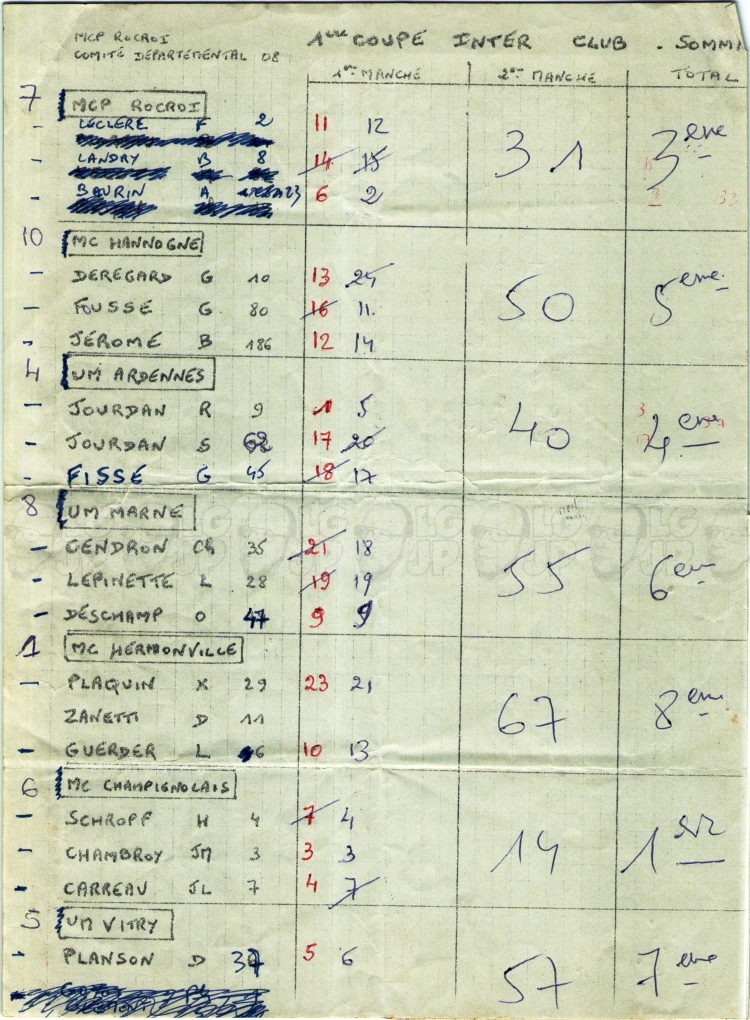 MCP ROCROI
COMITÉ DÉPARTEMENTAL 08
1ère COUPE INTER CLUB . SOMM
1ère MANCHE 2ème MANCHE TOTAL
7 MCP ROCROI
- LECLERE F 2 11 12 31 3eme
- LANDRY B 8 14 15
- BAURIN A 23 6 2 33
10 MC HANNOGNE
- DEREGARD G 10 13 24 50 5eme
- FOUSSE G 80 16 11
- JÉROME B 186 12 14
4 UM ARDENNES
- JOURDAN R 9 1 5 40 4eme
- JOURDAN S 62 17 20
- FISSE G 45 18 17
8 UM MARNE
- GENDRON Ch 35 21 18 55 6eme
- LEPINETTE L 28 19 19
- DESCHAMP O 47 9 9
1 MC HERMONVILLE
- PLAQUIN X 29 23 21 67 8eme
ZANETTI D 11
- GUERDER L 46 10 13
6 MC CHAMPIGNOLAIS
- SCHROPF H 4 7 4 14 1er
- CHAMBROY JM 3 3 3
- CARREAU JL 7 4 7
5 UM VITRY
- PLANSON D 37 5 6 57 7eme